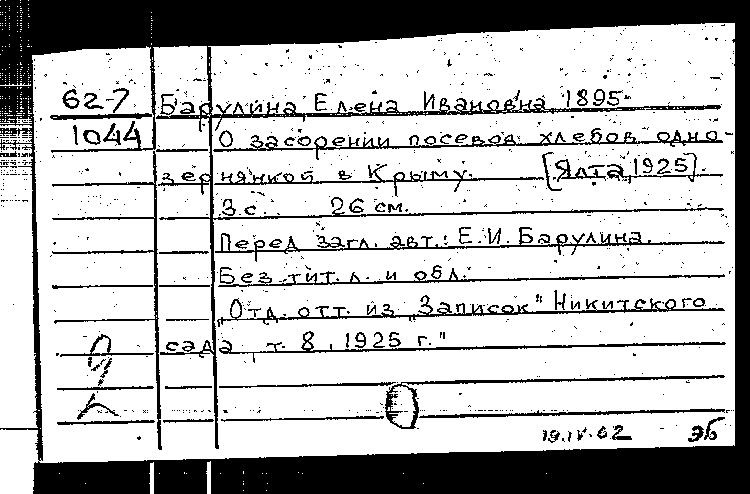 62-7 Барулина, Елена Ивановна, 1895-
1044 О засорении посевов хлебов одно-
зернянкой в Крыму. [Ялта, 1925].
3 с. 26 см.
Перед загл. авт.: Е.И. Барулина.
Без тит. л. и обл.
"Отд. отт. из "Записок" Никитского
сада, т. 8, 1925 г."
19.IV.62 ЭБ